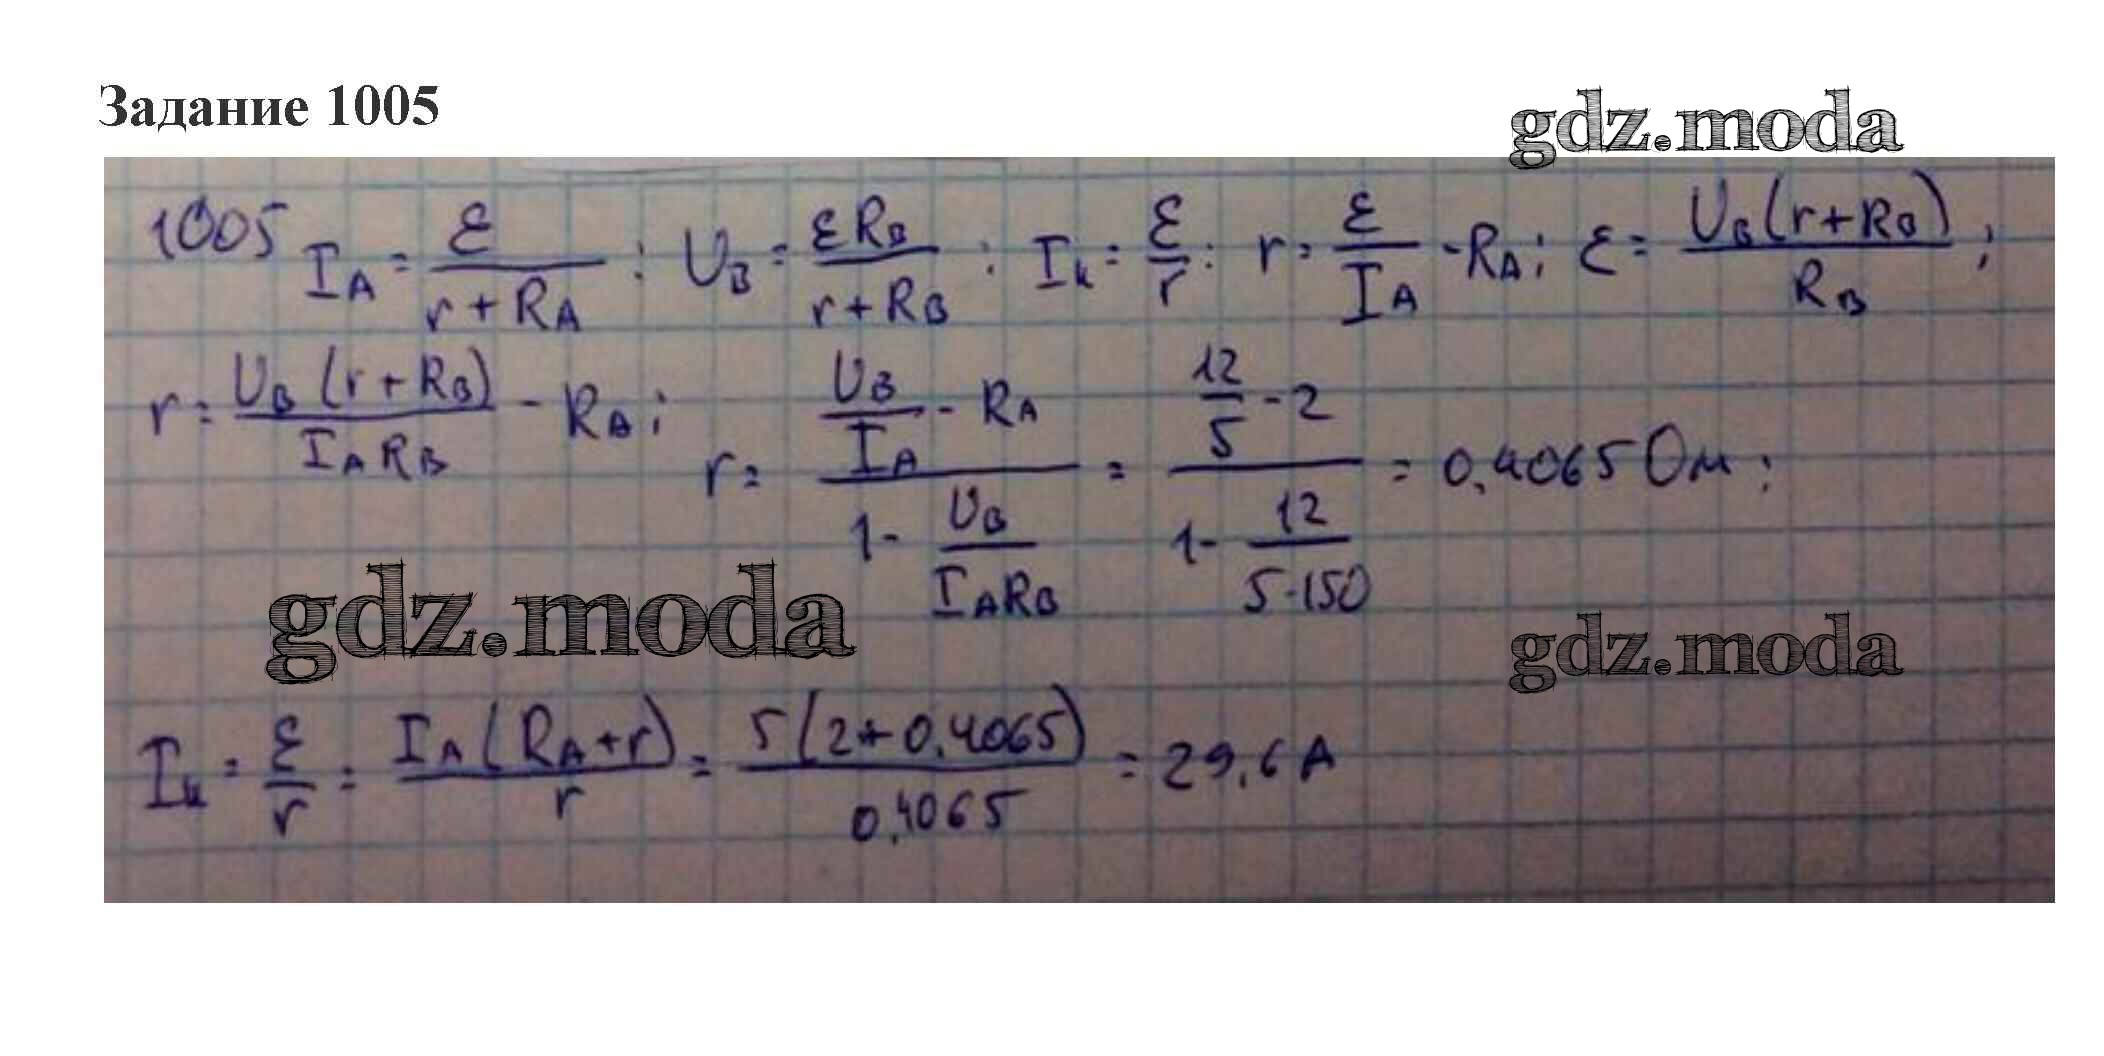 Задание 1005
gdz.moda
1005 I_A = ε/(r + R_A) ; U_B = εR_B/(r + R_B) ; I_к = ε/r ; r = ε/I_A - R_A ; ε = U_B(r + R_B)/R_B ;
r = U_B(r + R_B)/(I_A R_B) - R_A ; r = (U_B/I_A - R_A)/(1 - U_B/(I_A R_B)) = (12/5 - 2)/(1 - 12/(5·150)) = 0,4065 Ом ;
gdz.moda
gdz.moda
I_к = ε/r = I_A(R_A + r)/r = 5(2 + 0,4065)/0,4065 = 29,6 А